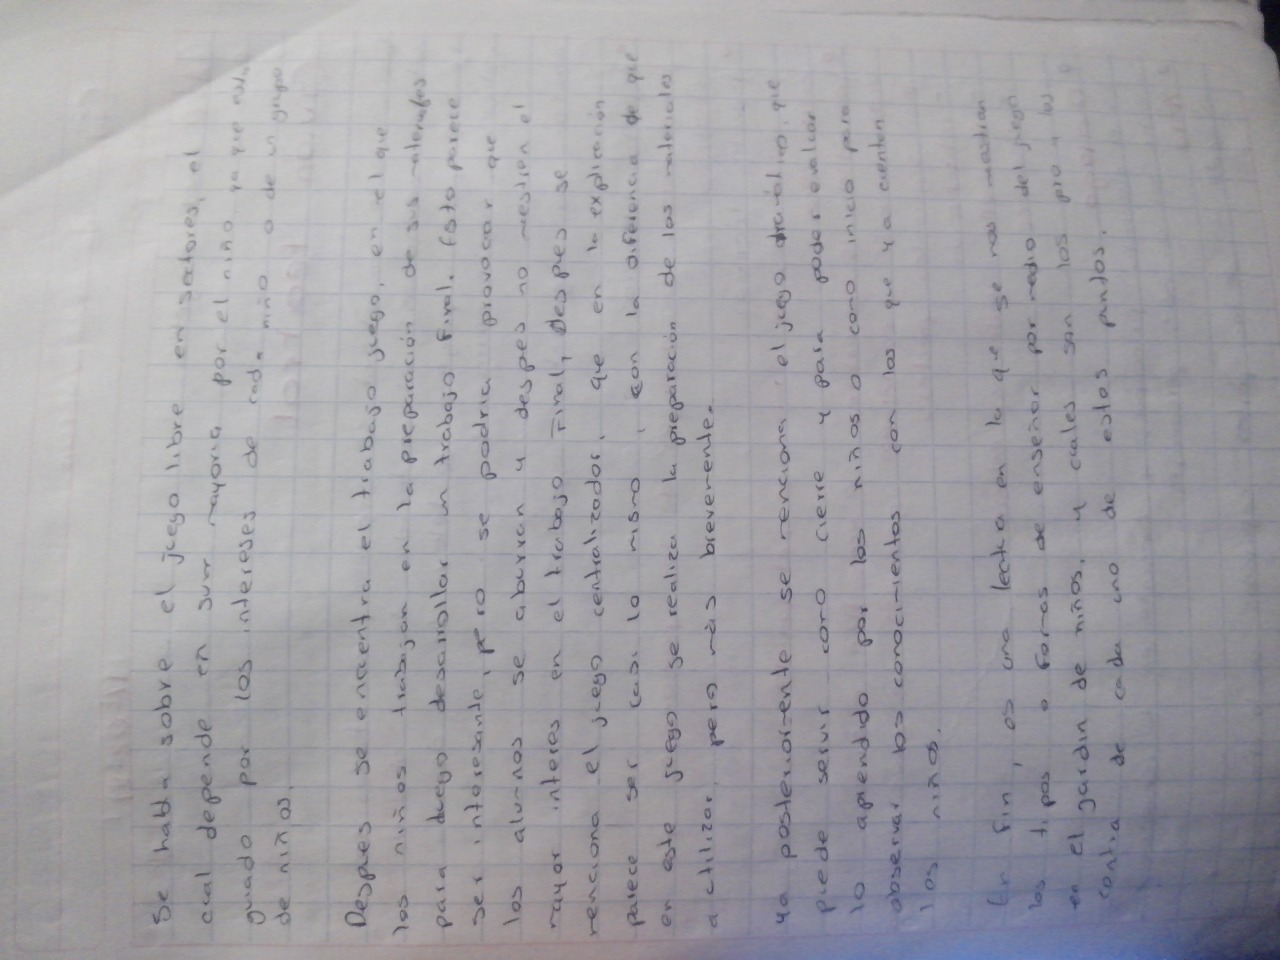 Se habla sobre el juego libre en sectores, el
cual depende en sum mayoria por el niño ya que esta
guiado por los intereses de cada niño o de un grupo
de niños.
Despues se encuentra el trabajo juego, en el que
los niños trabajan en la preparación de sus
para luego desarrollar un trabajo final. Esto parece
ser interesante, pero se podria provocar que
los alumnos se aburran y despes no mestren el
mayor interes en el trabajo final, Despes se
menciona el juego centralizador, que en la explicación
parece ser casi lo mismo, con la diferencia de que
en este juego se realiza la preparación de los materiales
a utilizar, pero màs brevemente.
Ya posteriormente se menciona el juego dramático, que
puede servir como cierre y para poder evaluar
lo aprendido por los niños o como inicio para
observar los conocimientos con los que ya cuentan
los niños.
En fin, es una lectura en la que se nos mostran
los tipos o formas de enseñar por medio del juego
en el jardin de niños, y cuales son los pro y los
contra de cada uno de estos puntos.